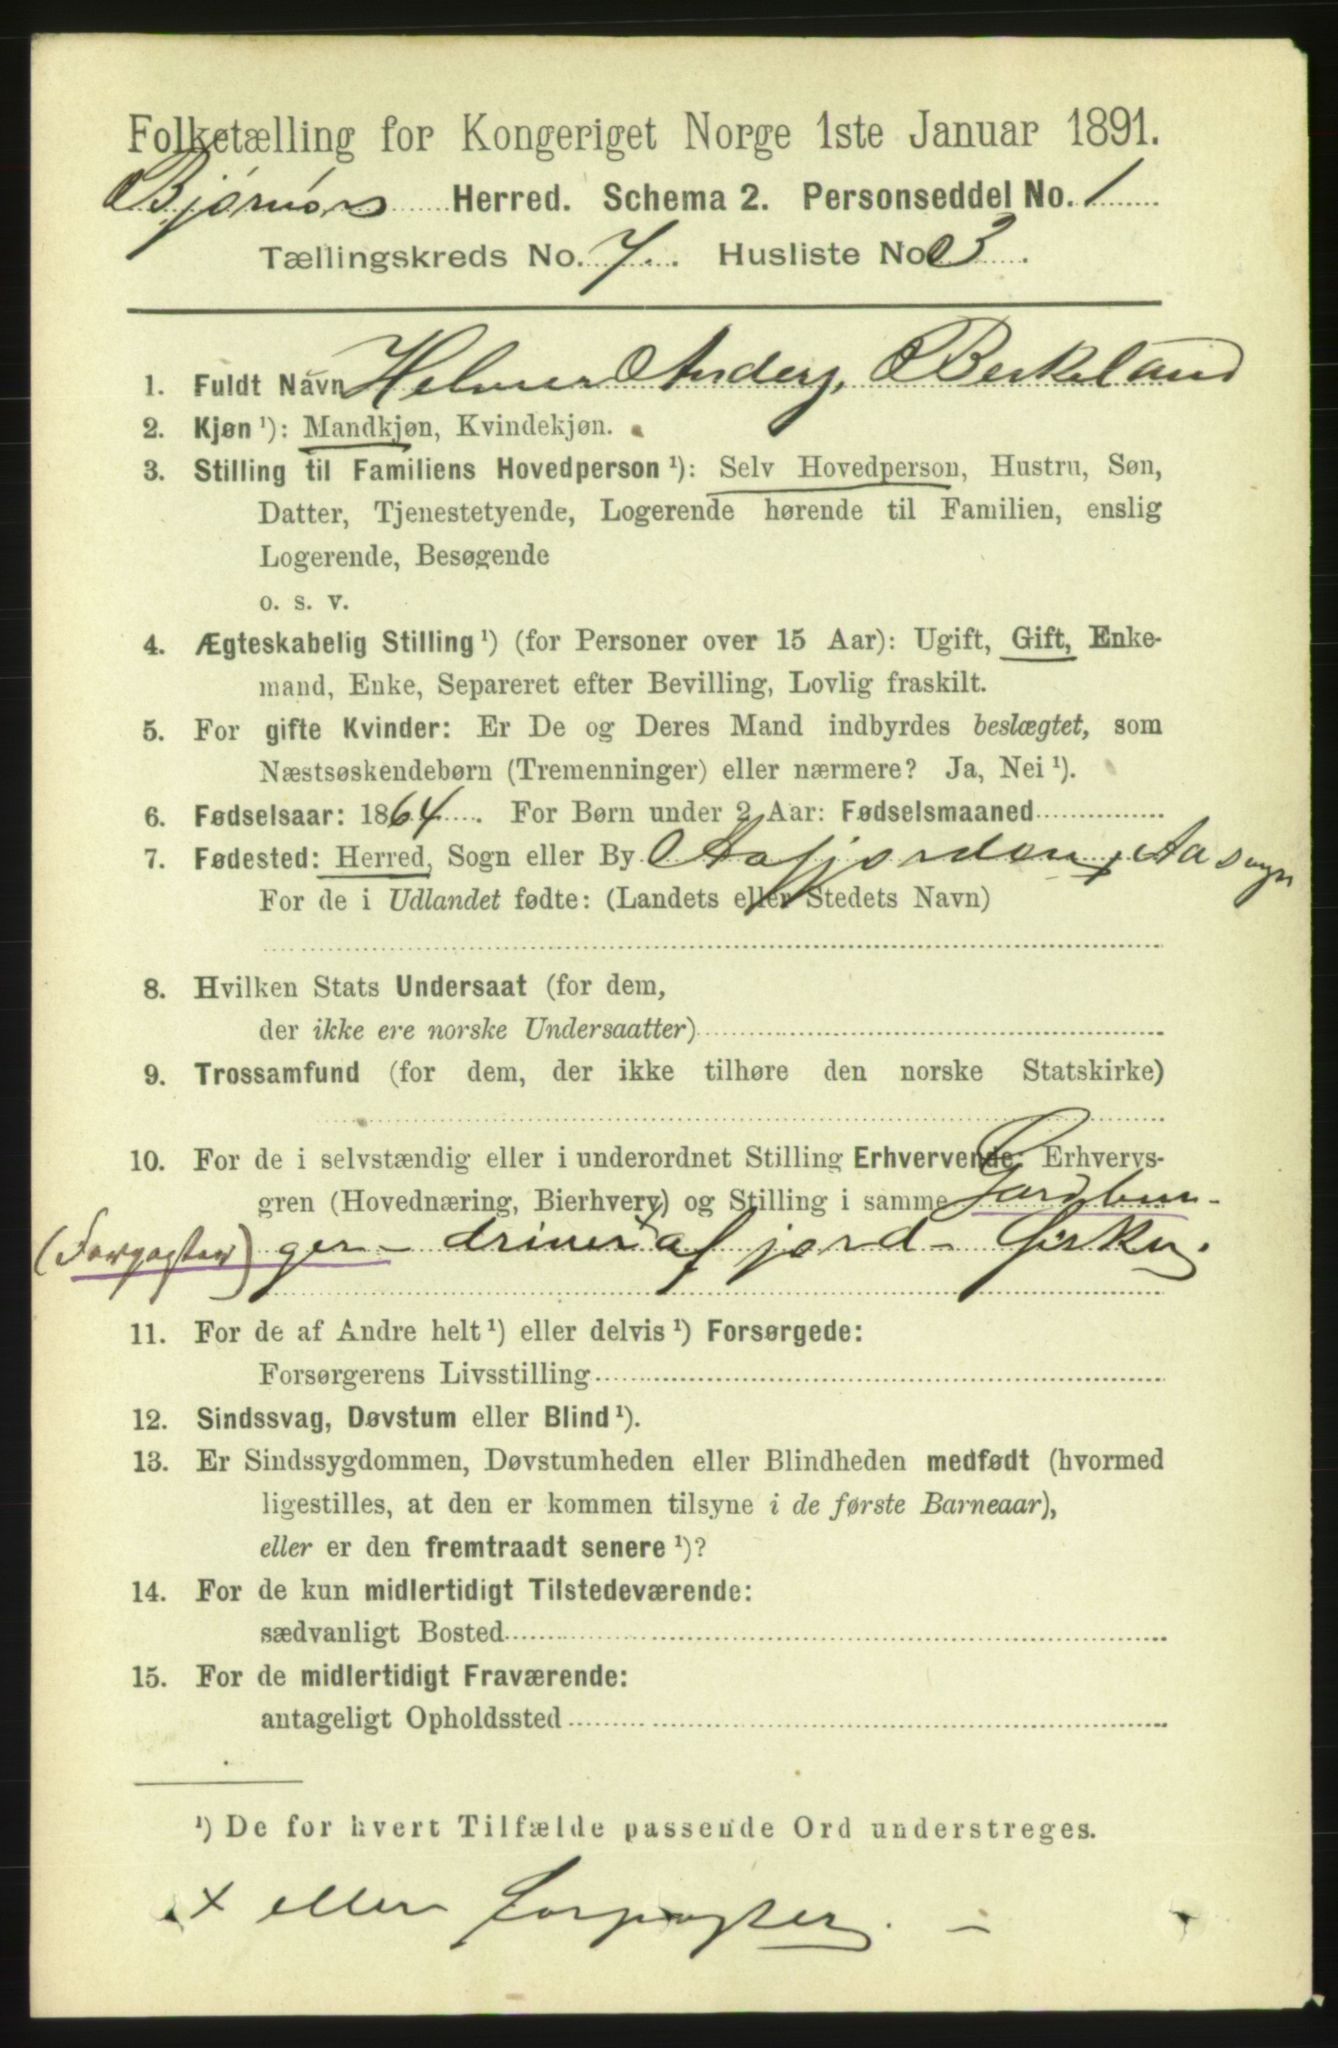 Folketælling for Kongeriget Norge 1ste Januar 1891.
Bjørnørs Herred. Schema 2. Personseddel No. 1
Tællingskreds No. 7. Husliste No. 3.
1. Fuldt Navn Helmer Anders. Berkeland
2. Kjøn ¹): Mandkjøn, Kvindekjøn.
3. Stilling til Familiens Hovedperson ¹): Selv Hovedperson, Hustru, Søn,
Datter, Tjenestetyende, Logerende hørende til Familien, enslig
Logerende, Besøgende
o. s. v.
4. Ægteskabelig Stilling ¹) (for Personer over 15 Aar): Ugift, Gift, Enke-
mand, Enke, Separeret efter Bevilling, Lovlig fraskilt.
5. For gifte Kvinder: Er De og Deres Mand indbyrdes beslægtet, som
Næstsøskendebørn (Tremenninger) eller nærmere? Ja, Nei ¹).
6. Fødselsaar: 1864. For Børn under 2 Aar: Fødselsmaaned
7. Fødested: Herred, Sogn eller By Aafjorden, Aa sogn
For de i Udlandet fødte: (Landets eller Stedets Navn)
8. Hvilken Stats Undersaat (for dem,
der ikke ere norske Undersaatter)
9. Trossamfund (for dem, der ikke tilhøre den norske Statskirke)
10. For de i selvstændig eller i underordnet Stilling Erhvervende: Erhvervs-
gren (Hovednæring, Bierhverv) og Stilling i samme Gardbru-
(Forpagter) ger - driver x af jord-
11. For de af Andre helt ¹) eller delvis ¹) Forsørgede:
Forsørgerens Livsstilling
12. Sindssvag, Døvstum eller Blind ¹).
13. Er Sindssygdommen, Døvstumheden eller Blindheden medfødt (hvormed
ligestilles, at den er kommen tilsyne i de første Barneaar),
eller er den fremtraadt senere ¹)?
14. For de kun midlertidigt Tilstedeværende:
sædvanligt Bosted
15. For de midlertidigt Fraværende:
antageligt Opholdssted
¹) De for hvert Tilfælde passende Ord understreges.
x eller forpagter. -